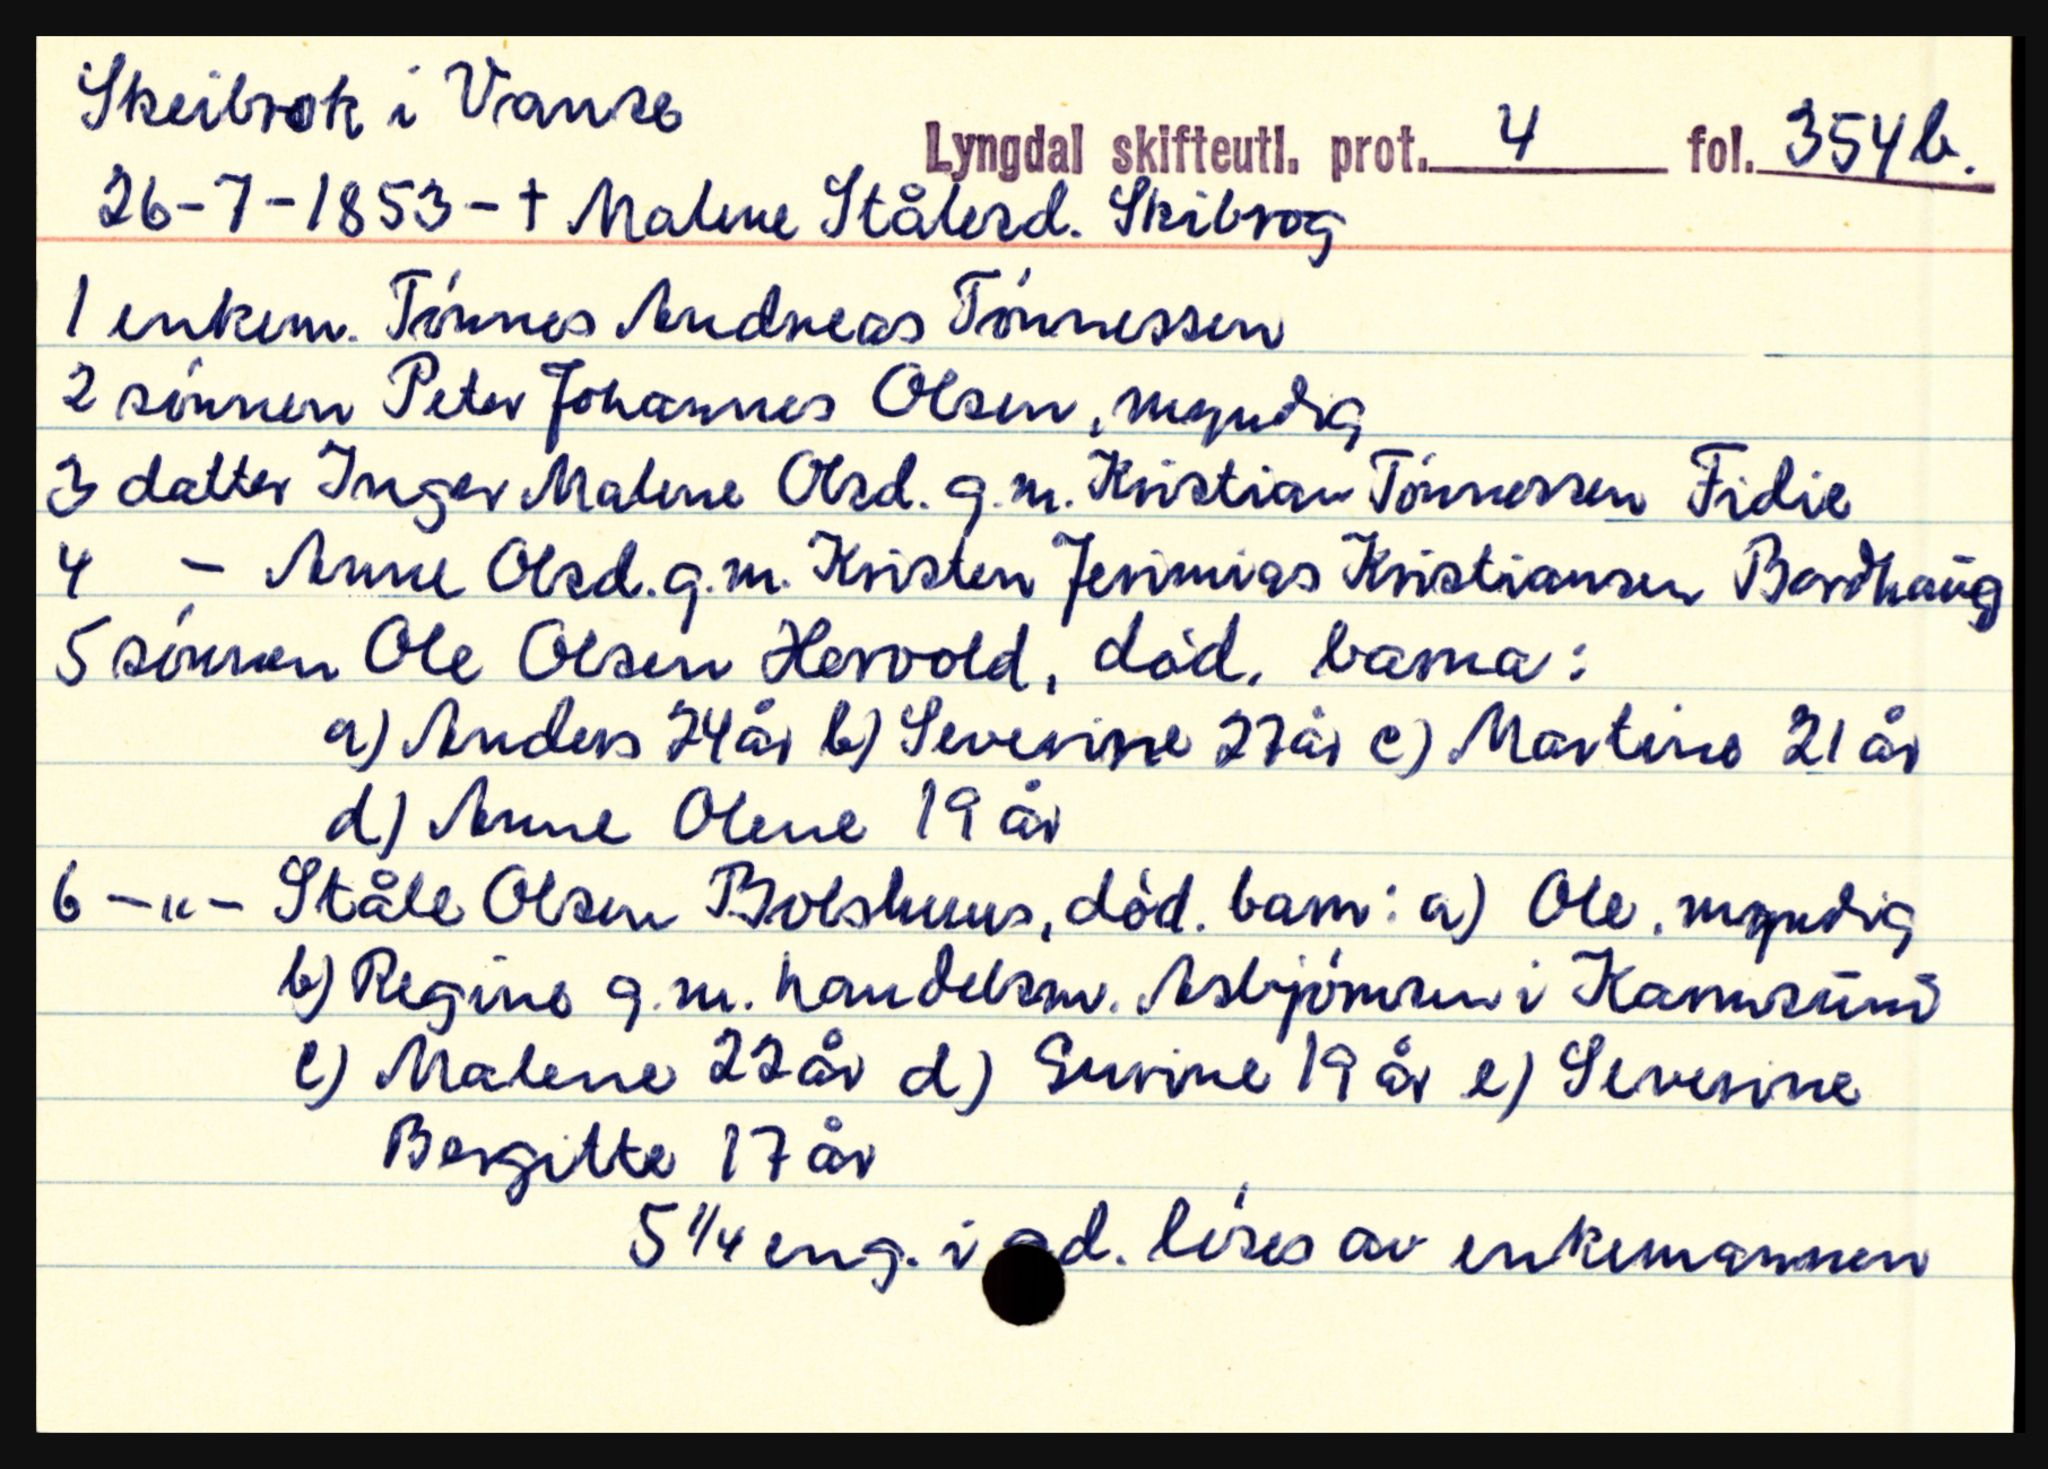 Skeibrok i Vanse
Lyngdal skifteutl. prot. 4 fol. 354b.
26-7-1853-† Malene Stålesd. Skibrog
1 enkem. Tönnes Andreas Tönnessen
2 sönnen Peter Johannes Olsen, myndig
3 datter Inger Malene Olsd. g.m. Kristian Tönnessen Fidie
4 - Anne Olsd. g.m. Kristen Jerimias Kristiansen Bordhaug
5 sönnen Ole Olsen Hervold, död, barna:
a) Anders 24 år b) Severine 27 år c) Martine 21 år
d) Anne Olene 19 år
6 -"- Ståle Olsen Bolshuus, död. barn: a) Ole, myndig
b) Regine g.m. handelsm. Asbjörnsen i Karmsund
c) Malene 22 år d) Gurine 19 år e) Severine
Bergitte 17 år
5 1/4 eng. i gd. löses av enkemannen